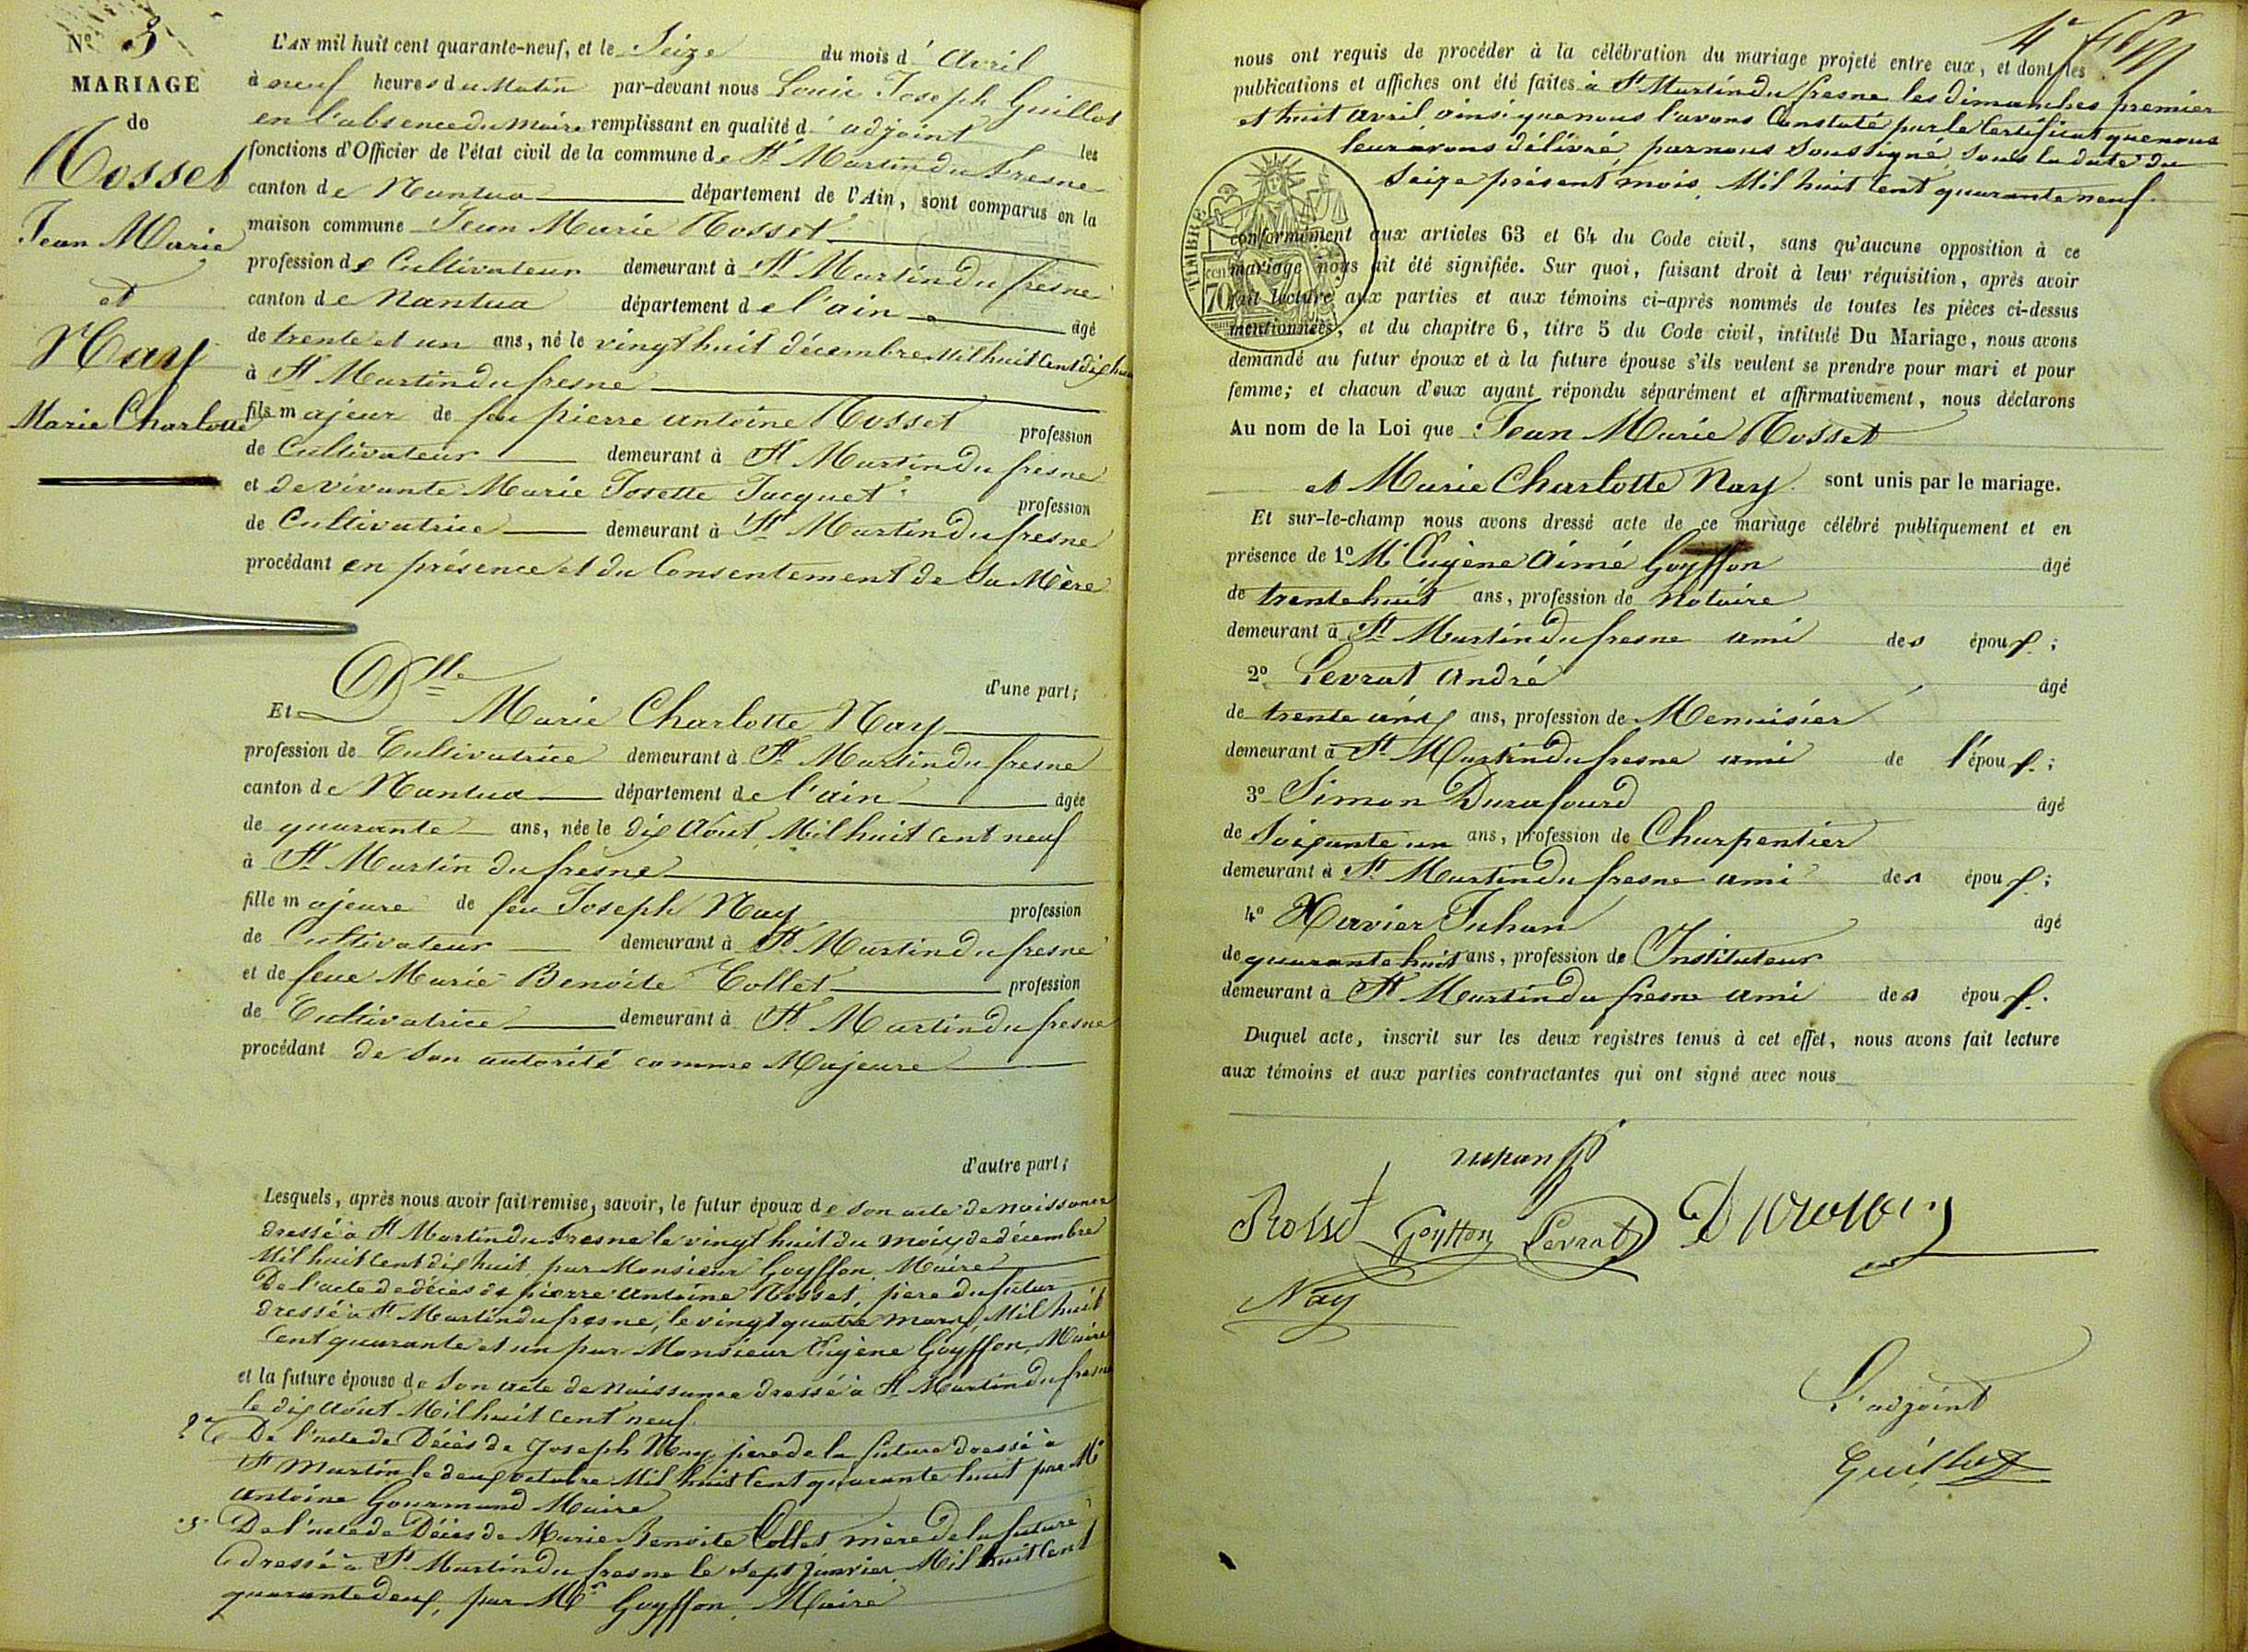 N° 3
MARIAGE
de
Rosset
Jean Marie
et
Nay
Marie Charlotte
L'AN mil huit cent quarante-neuf, et le Seize du mois d'Avril
à neuf heures du Matin par-devant nous Louis Joseph Guillot
en l'absence du Maire remplissant en qualité d'adjoint les
fonctions d'Officier de l'état civil de la commune de St Martin du Fresne
canton de Nantua département de l'Ain, sont comparus en la
maison commune Jean Marie Rosset
profession de Cultivateur demeurant à St Martin du fresne
canton de Nantua département de l'ain âgé
de trente et un ans, né le vingt huit décembre Mil huit Cent dix huit
à St Martin du fresne
fils majeur de feu pierre antoine Rosset profession
de Cultivateur demeurant à St Martin du fresne
et de vivante Marie Josette Jacquet profession
de Cultivatrice demeurant à St Martin du fresne
procédant en présence et du Consentement de Sa Mère
d'une part;
Et Dlle Marie Charlotte Nay
profession de Cultivatrice demeurant à St Martin du fresne
canton de Nantua département de l'ain âgée
de quarante ans, née le dix Aout Mil huit cent neuf
à St Martin du fresne
fille majeure de feu Joseph Nay profession
de Cultivateur demeurant à St Martin du fresne
et de feue Marie Benoite Collet profession
de Cultivatrice demeurant à St Martin du fresne
procédant de Son autorité comme Majeure
d'autre part;
Lesquels, après nous avoir fait remise, savoir, le futur époux de son acte de naissance
dressé à St Martin du Fresne le vingt huit du mois de décembre
Mil huit Cent dix huit, par Monsieur Goyffon, Maire
De l'acte de décès de pierre antoine Rosset, père du futur
dressé à St Martin du fresne, le vingt quatre mars, Mil huit
Cent quarante et un par Monsieur Eugène Goyffon, Maire
et la future épouse de Son acte de Naissance dressé à St Martin du fresne
le dix Aout Mil huit Cent neuf.
2° De l'acte de Décès de Joseph Nay père de la future dressé à
St Martin le deux octobre Mil huit Cent quarante huit par Mr
antoine Gourmand Maire
3° De l'acte de Décès de Marie Benoite Collet mère de la future
dressé à St Martin du fresne le sept Janvier Mil huit Cent
quarante deux, par Mr Goyffon, Maire
nous ont requis de procéder à la célébration du mariage projeté entre eux, et dont les
publications et affiches ont été faites à St Martin du fresne les dimanches premier
et huit avril, ainsi que nous l'avons Constaté par le Certificat que nous
leur avons délivré par nous Soussigné, sous la date du
Seize présent mois, Mil huit Cent quarante neuf.
TIMBRE
70
conformément aux articles 63 et 64 du Code civil, sans qu'aucune opposition à ce
mariage nous ait été signifiée. Sur quoi, faisant droit à leur réquisition, après avoir
fait lecture aux parties et aux témoins ci-après nommés de toutes les pièces ci-dessus
mentionnées, et du chapitre 6, titre 5 du Code civil, intitulé Du Mariage, nous avons
demandé au futur époux et à la future épouse s'ils veulent se prendre pour mari et pour
femme; et chacun d'eux ayant répondu séparément et affirmativement, nous déclarons
Au nom de la Loi que Jean Marie Rosset
et Marie Charlotte Nay sont unis par le mariage.
Et sur-le-champ nous avons dressé acte de ce mariage célébré publiquement et en
présence de 1° Mr Eugène Aimé Goyffon âgé
de trente huit ans, profession de Notaire
demeurant à St Martin du fresne ami des époux;
2° Levrat André âgé
de trente cinq ans, profession de Menuisier
demeurant à St Martin du fresne ami de l'époux;
3° Simon Durafourd âgé
de Soixante un ans, profession de Charpentier
demeurant à St Martin du fresne ami des époux;
4° Xavier Juhan âgé
de quarante huit ans, profession de Instituteur
demeurant à St Martin du fresne ami des époux.
Duquel acte, inscrit sur les deux registres tenus à cet effet, nous avons fait lecture
aux témoins et aux parties contractantes qui ont signé avec nous
Juhan
Rosset Goyffon Levrat
Nay
L'adjoint
Guillot